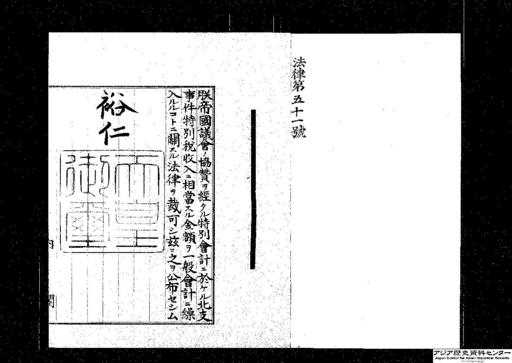 法律第五十一號
朕帝國議會ノ協贊ヲ經タル特別會計ニ於ケル北支
事件特別稅收入ニ相當スル金額ヲ一般會計ニ繰
入ルルコトニ關スル法律ヲ裁可シ玆ニ之ヲ公布セシム
裕仁
天皇
御璽
内
閣
アジア歴史資料センター
Japan Center for Asian Historical Records